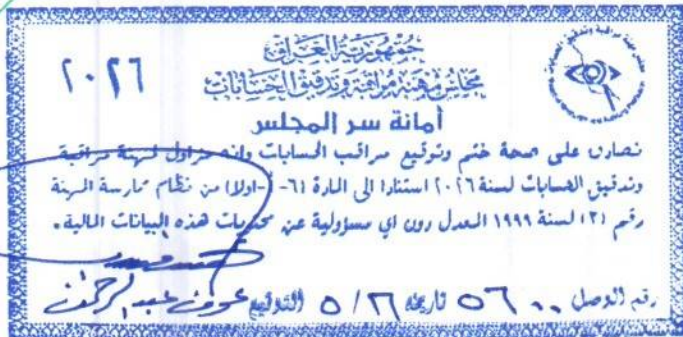 جمهورية العراق
مجلس مهنة مراقبة وتدقيق الحسابات
٢٠٢٦
أمانة سر المجلس
نصادق على صحة ختم وتوقيع مراقب الحسابات وانه مزاول لمهنة مراقبة
وتدقيق الحسابات لسنة ٢٠٢٦ استنادا الى المادة (٦- -اولا) من نظام ممارسة المهنة
رقم (٣) لسنة ١٩٩٩ المعدل دون اي مسؤولية عن محتويات هذه البيانات المالية.
رقم الوصل ٥٦٠٠ تاريخه ٥/٢٦ التوقيع عبد الرحمن